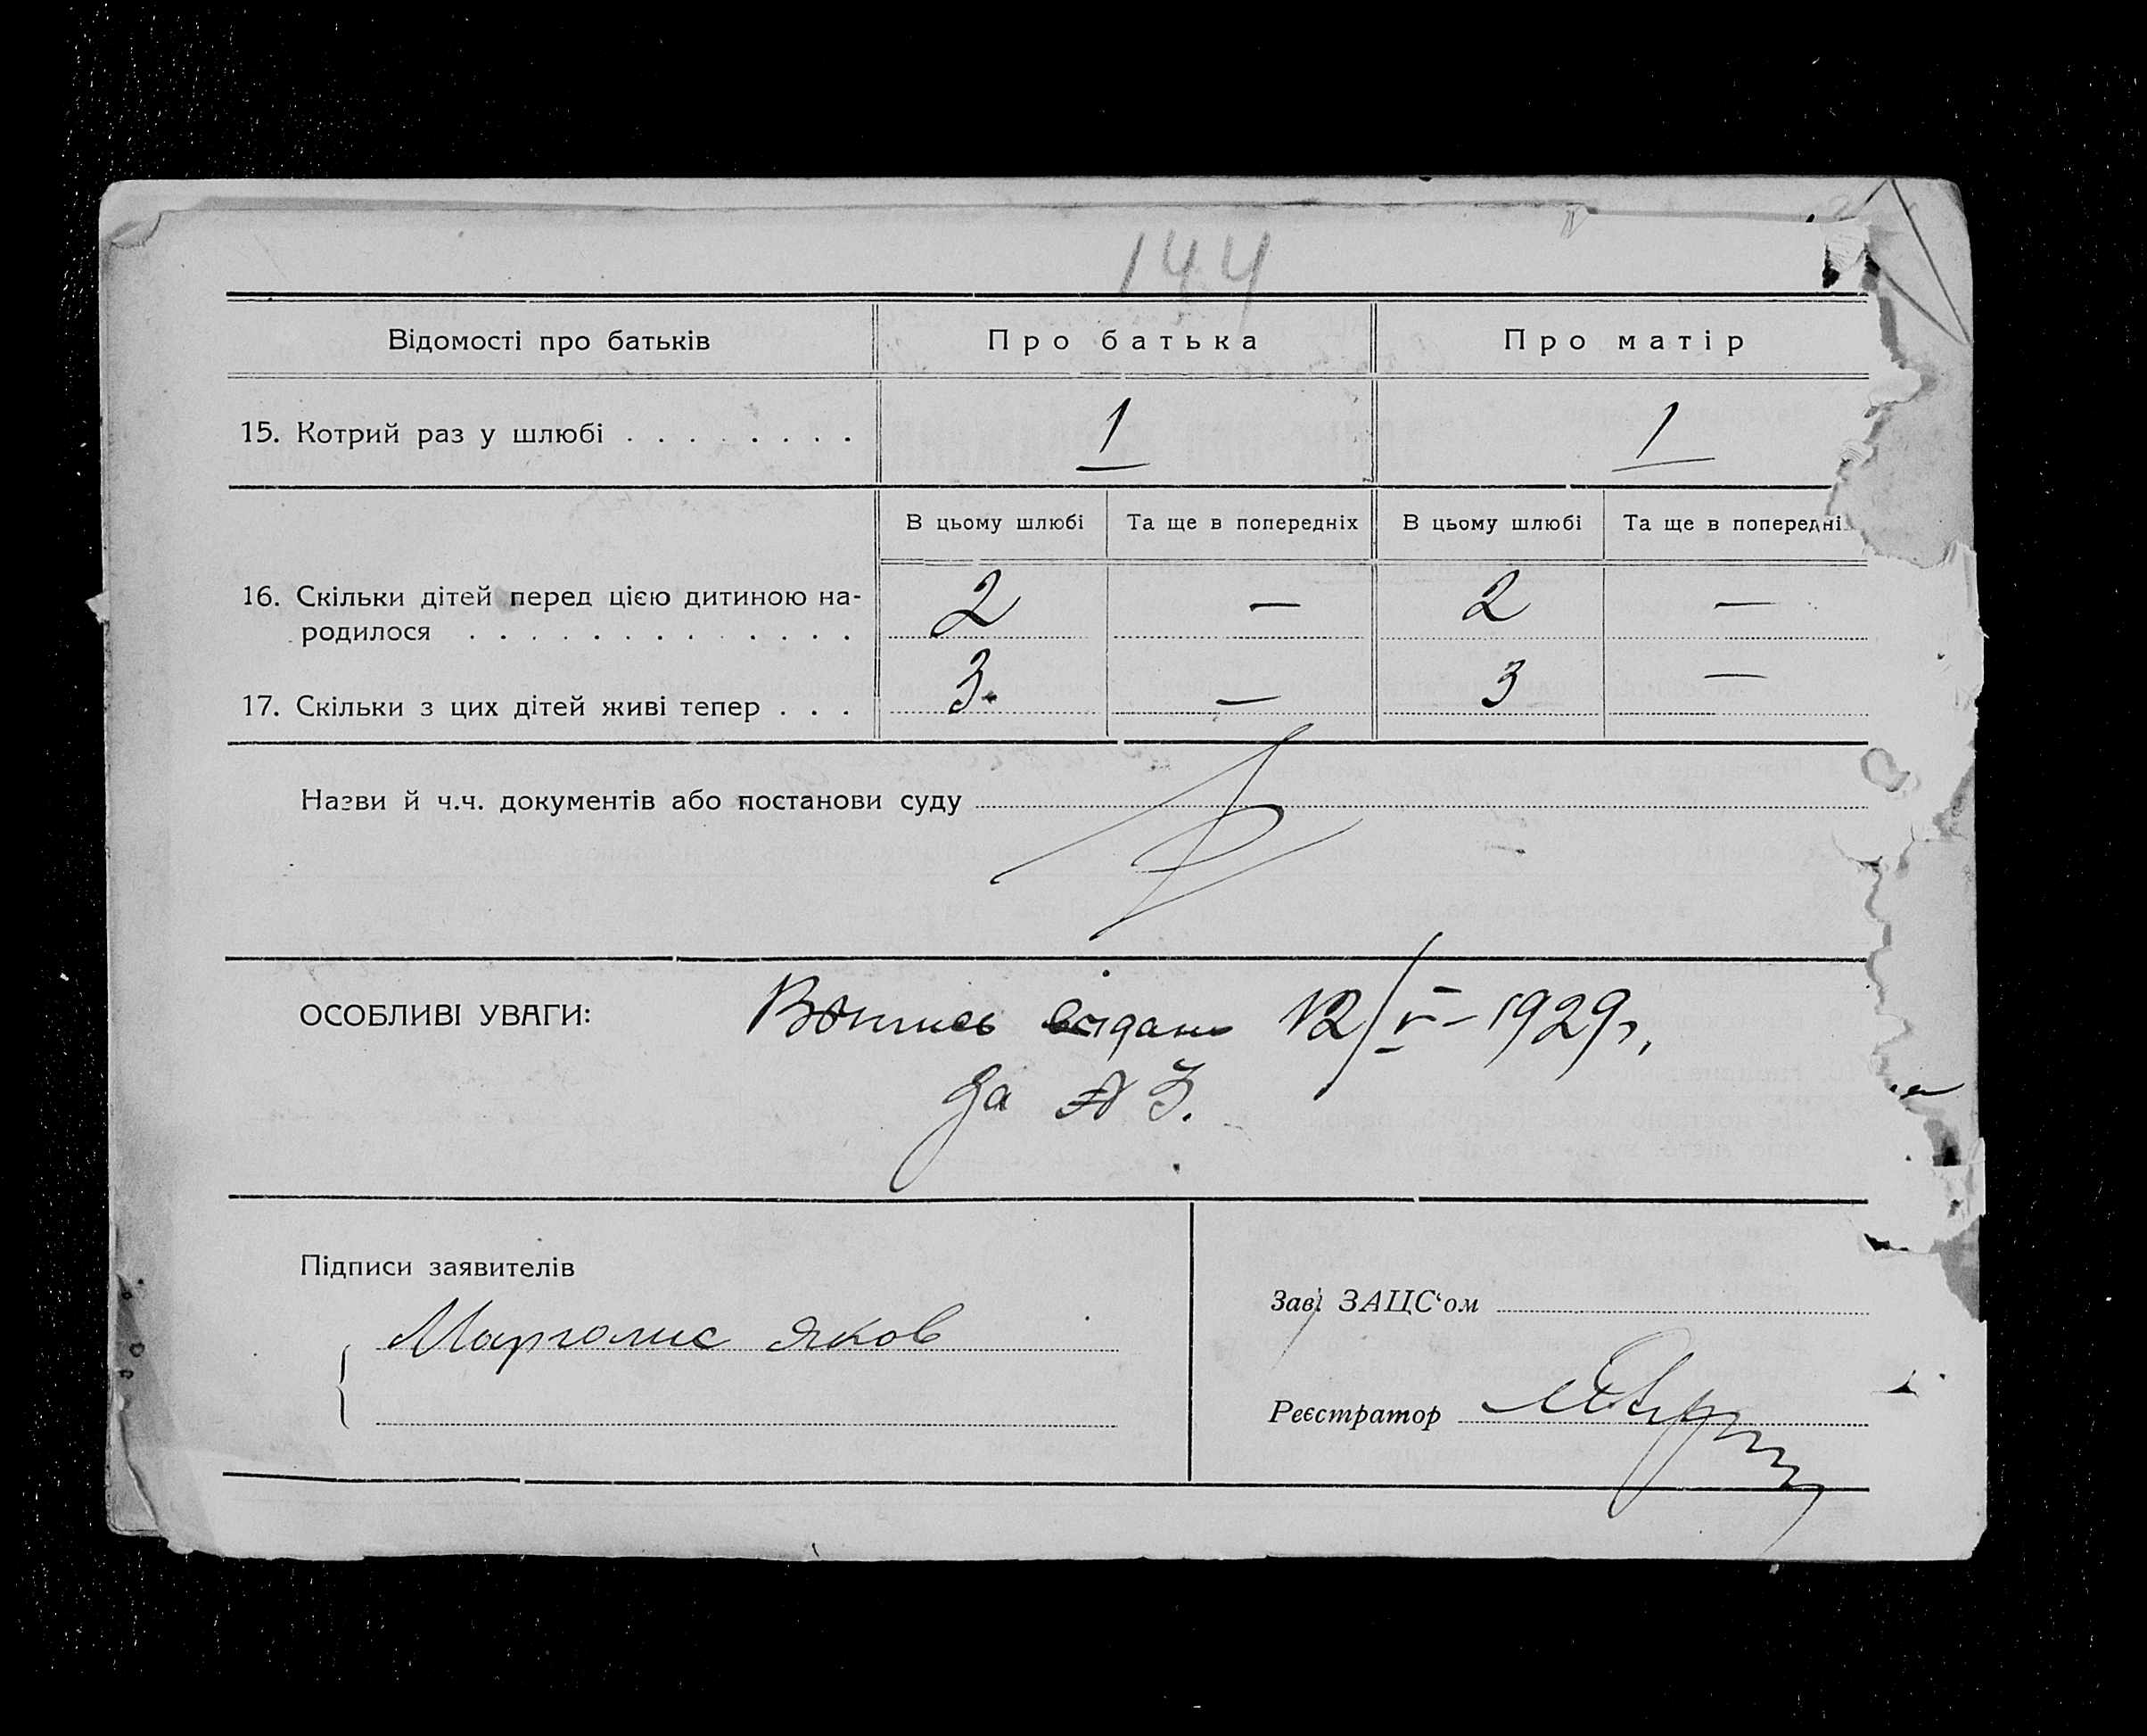 144
Відомості про батьків Про батька Про матір
15. Котрий раз у шлюбі . . . . . . . . 1 1
В цьому шлюбі Та ще в попередніх В цьому шлюбі Та ще в попередні
16. Скільки дітей перед цією дитиною на- 2 — 2 —
родилося . . . . . . . . . . . . .
17. Скільки з цих дітей живі тепер . . . 3. — 3 —
Назви й ч.ч. документів або постанови суду
ОСОБЛИВІ УВАГИ: 12/V-1929г.
За № 3.
Підписи заявителів
Марголис Яков
Зав. ЗАЦС‘ом
Реєстратор